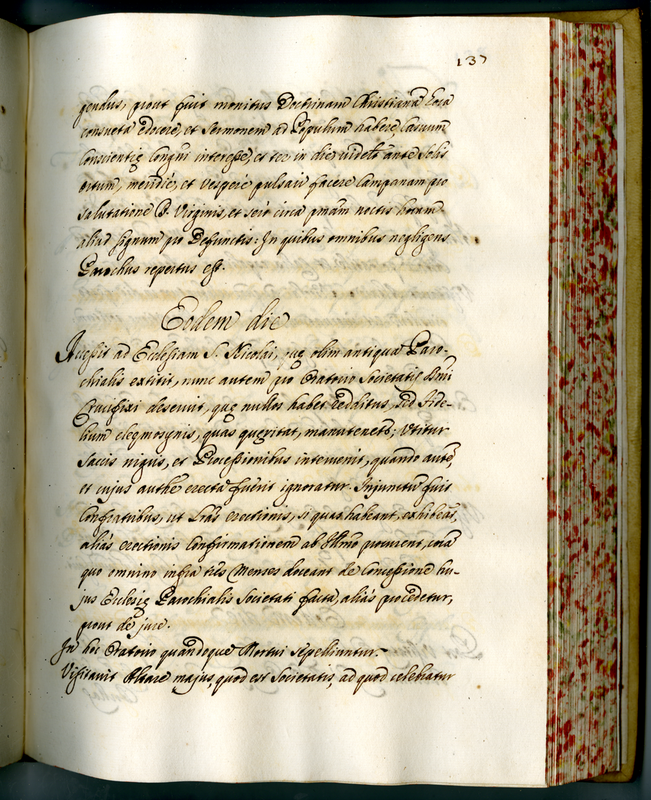 137
gendus, prout fuit monitus Doctrinam Christianã hora
consueta edocere, et Sermonem ad Populum habere, Casuum
Conscientię Congni interesse, et ter in die, videlt ante Solis
ortum, meridie, et vespere pulsari facere Campanam pro
salutatione B. Virginis, et seró circa pmãm noctis horam
aliud signum pro Defunctis: In quibus omnibus negligens
Parochus repertus est.
Eodem die
Accessit ad Ecclesiam S. Nicolai, quę olim antiqua Paro-
chialis extitit, nunc autem pro Oratorio Societatis Smi
Crucifixi deservit, quę nullos habet redditus, sed Fide-
lium eleęmosynis, quas quęritat, manutenetr; Utitur
Saccis nigris, et Processionibus intervenit; quando autẽ,
et cujus autħe erecta fuerit ignoratur. Injunctũ fuit
Confratibus, ut Lrãs erectionis, si quas habeant, exhibeãt,
aliás erectionis Confirmationem ab Illmo procurent, corã
quo omnino infra três Menses doceant de Concessione hu-
jus Ecclesię Parochialis Societati facta, aliás procedetur,
prout de jure.
In hoc Oratorio quandoque Mortui sepelliuntur.
Visitavit Altare majus, quod est Societatis, ad quod celebratur